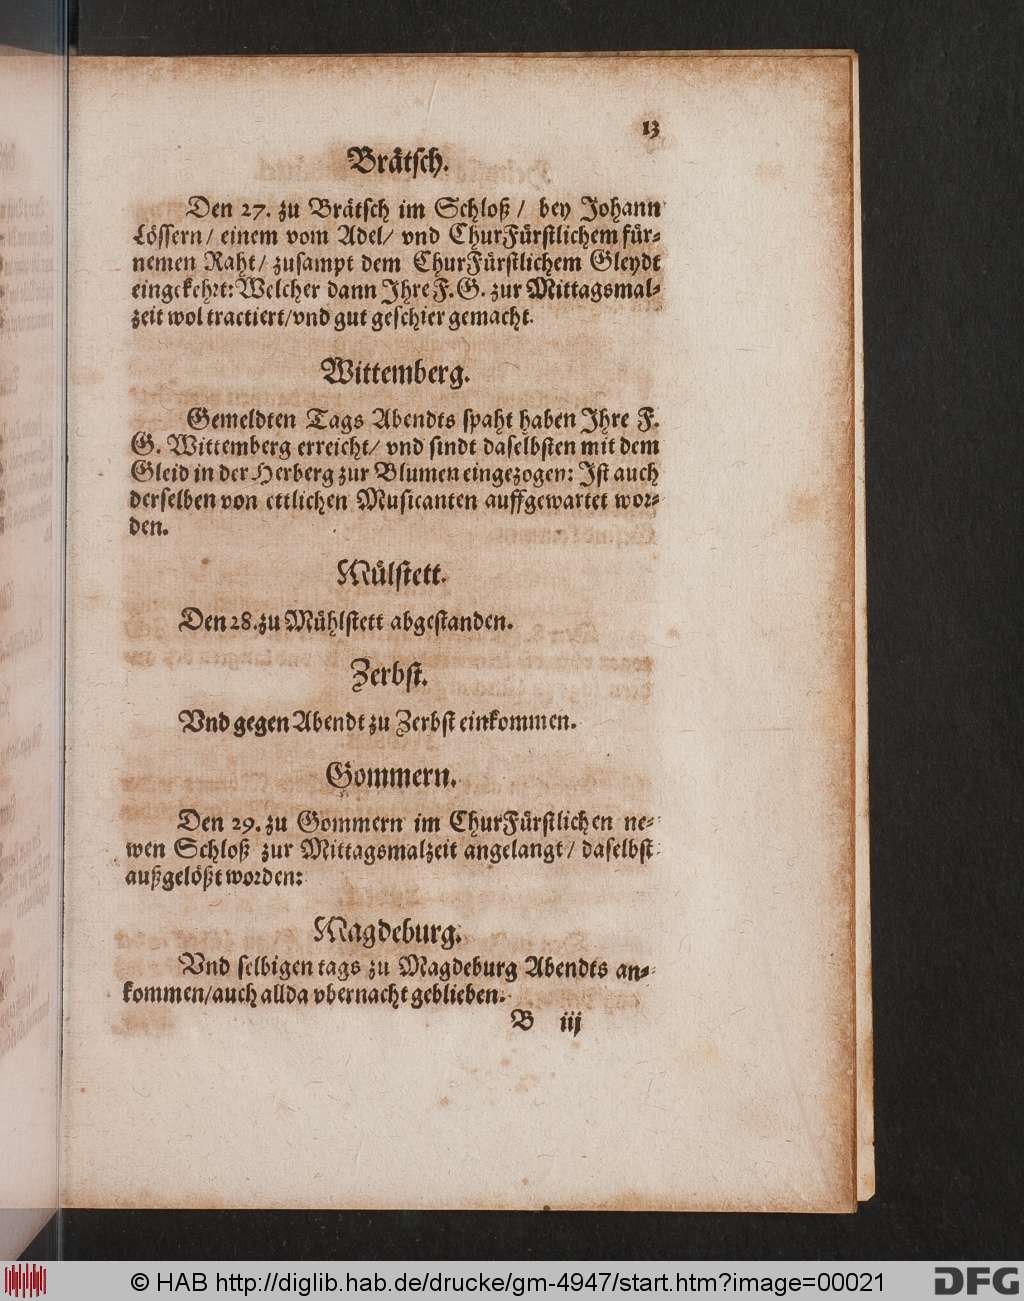 13
Brätſch.
Den 27. zu Brätſch im Schloß / bey Johann
Löſſern / einem vom Adel / vnd ChurFürſtlichem für⸗
nemen Raht / zuſampt dem ChurFürſtlichem Gleydt
eingekehrt: Welcher dann Ihre F. G. zur Mittagsmal⸗
zeit wol tractiert / vnd gut geſchier gemacht.
Wittemberg.
Gemeldten Tags Abendts ſpaht haben Ihre F.
G. Wittemberg erreicht / vnd ſindt daſelbſten mit dem
Gleid in der Herberg zur Blumen eingezogen: Iſt auch
derſelben von ettlichen Muſicanten auffgewartet wor⸗
den.
Mülſtett.
Den 28. zu Mühlſtett abgeſtanden.
Zerbſt.
Vnd gegen Abendt zu Zerbſt einkommen.
Gommern.
Den 29. zu Gommern im ChurFürſtlichen ne⸗
wen Schloß zur Mittagsmalzeit angelangt / daſelbſt
außgelößt worden:
Magdeburg.
Vnd ſelbigen tags zu Magdeburg Abendts an⸗
kommen / auch allda vbernacht geblieben.
B iij
© HAB http://diglib.hab.de/drucke/gm-4947/start.htm?image=00021
DFG